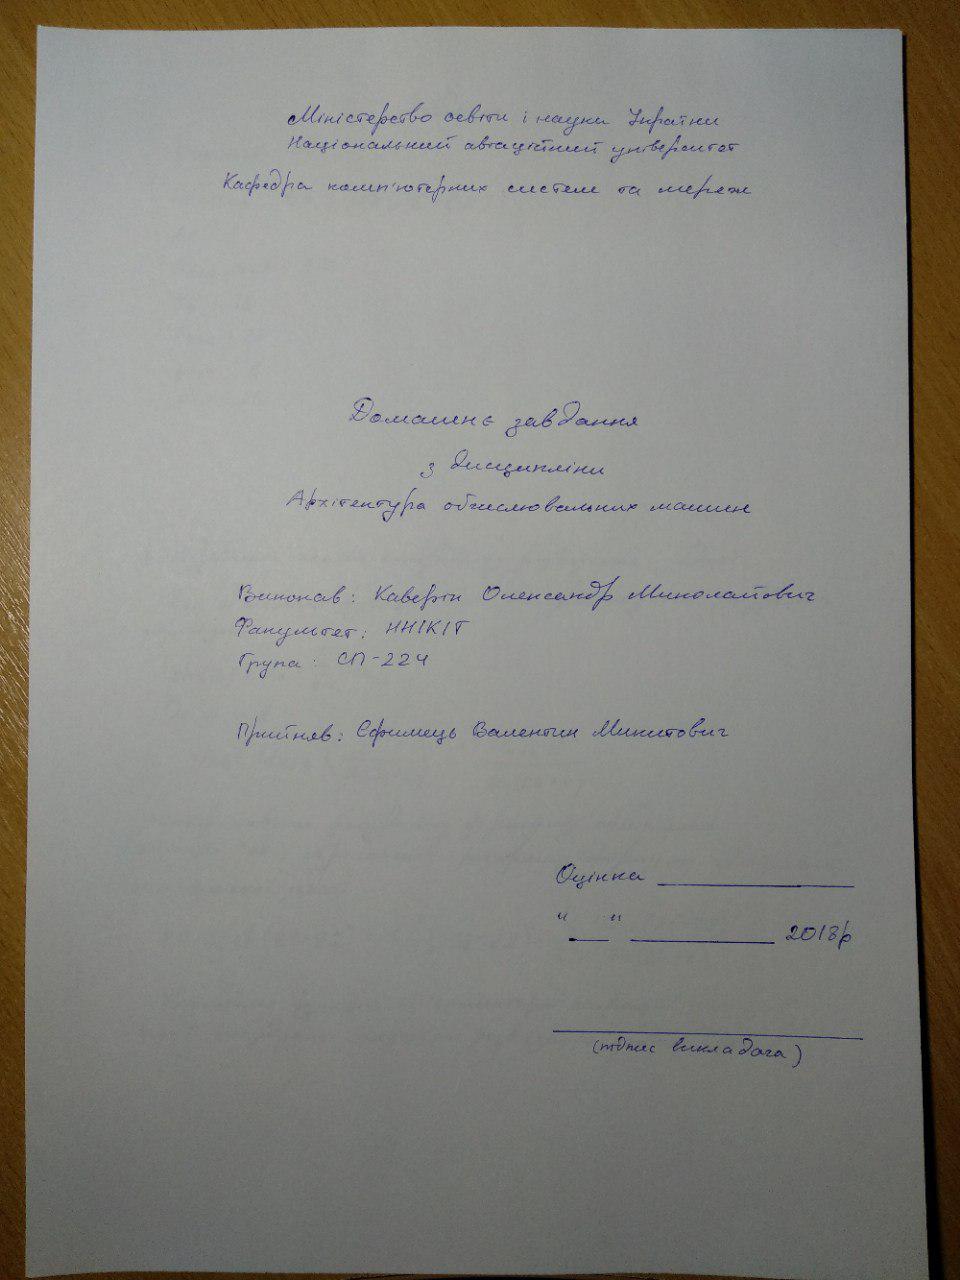 Міністерство освіти і науки України
Національний авіаційний університет
Кафедра комп'ютерних систем та мереж
Домашнє завдання
з дисципліни
Архітектура обчислювальних машин
Виконав: Каверін Олександр Миколайович
Факультет: ННІКІТ
Група: СП-224
Прийняв: Єфимець Валентин Микитович
Оцінка
" " 2018р
(підпис викладача)